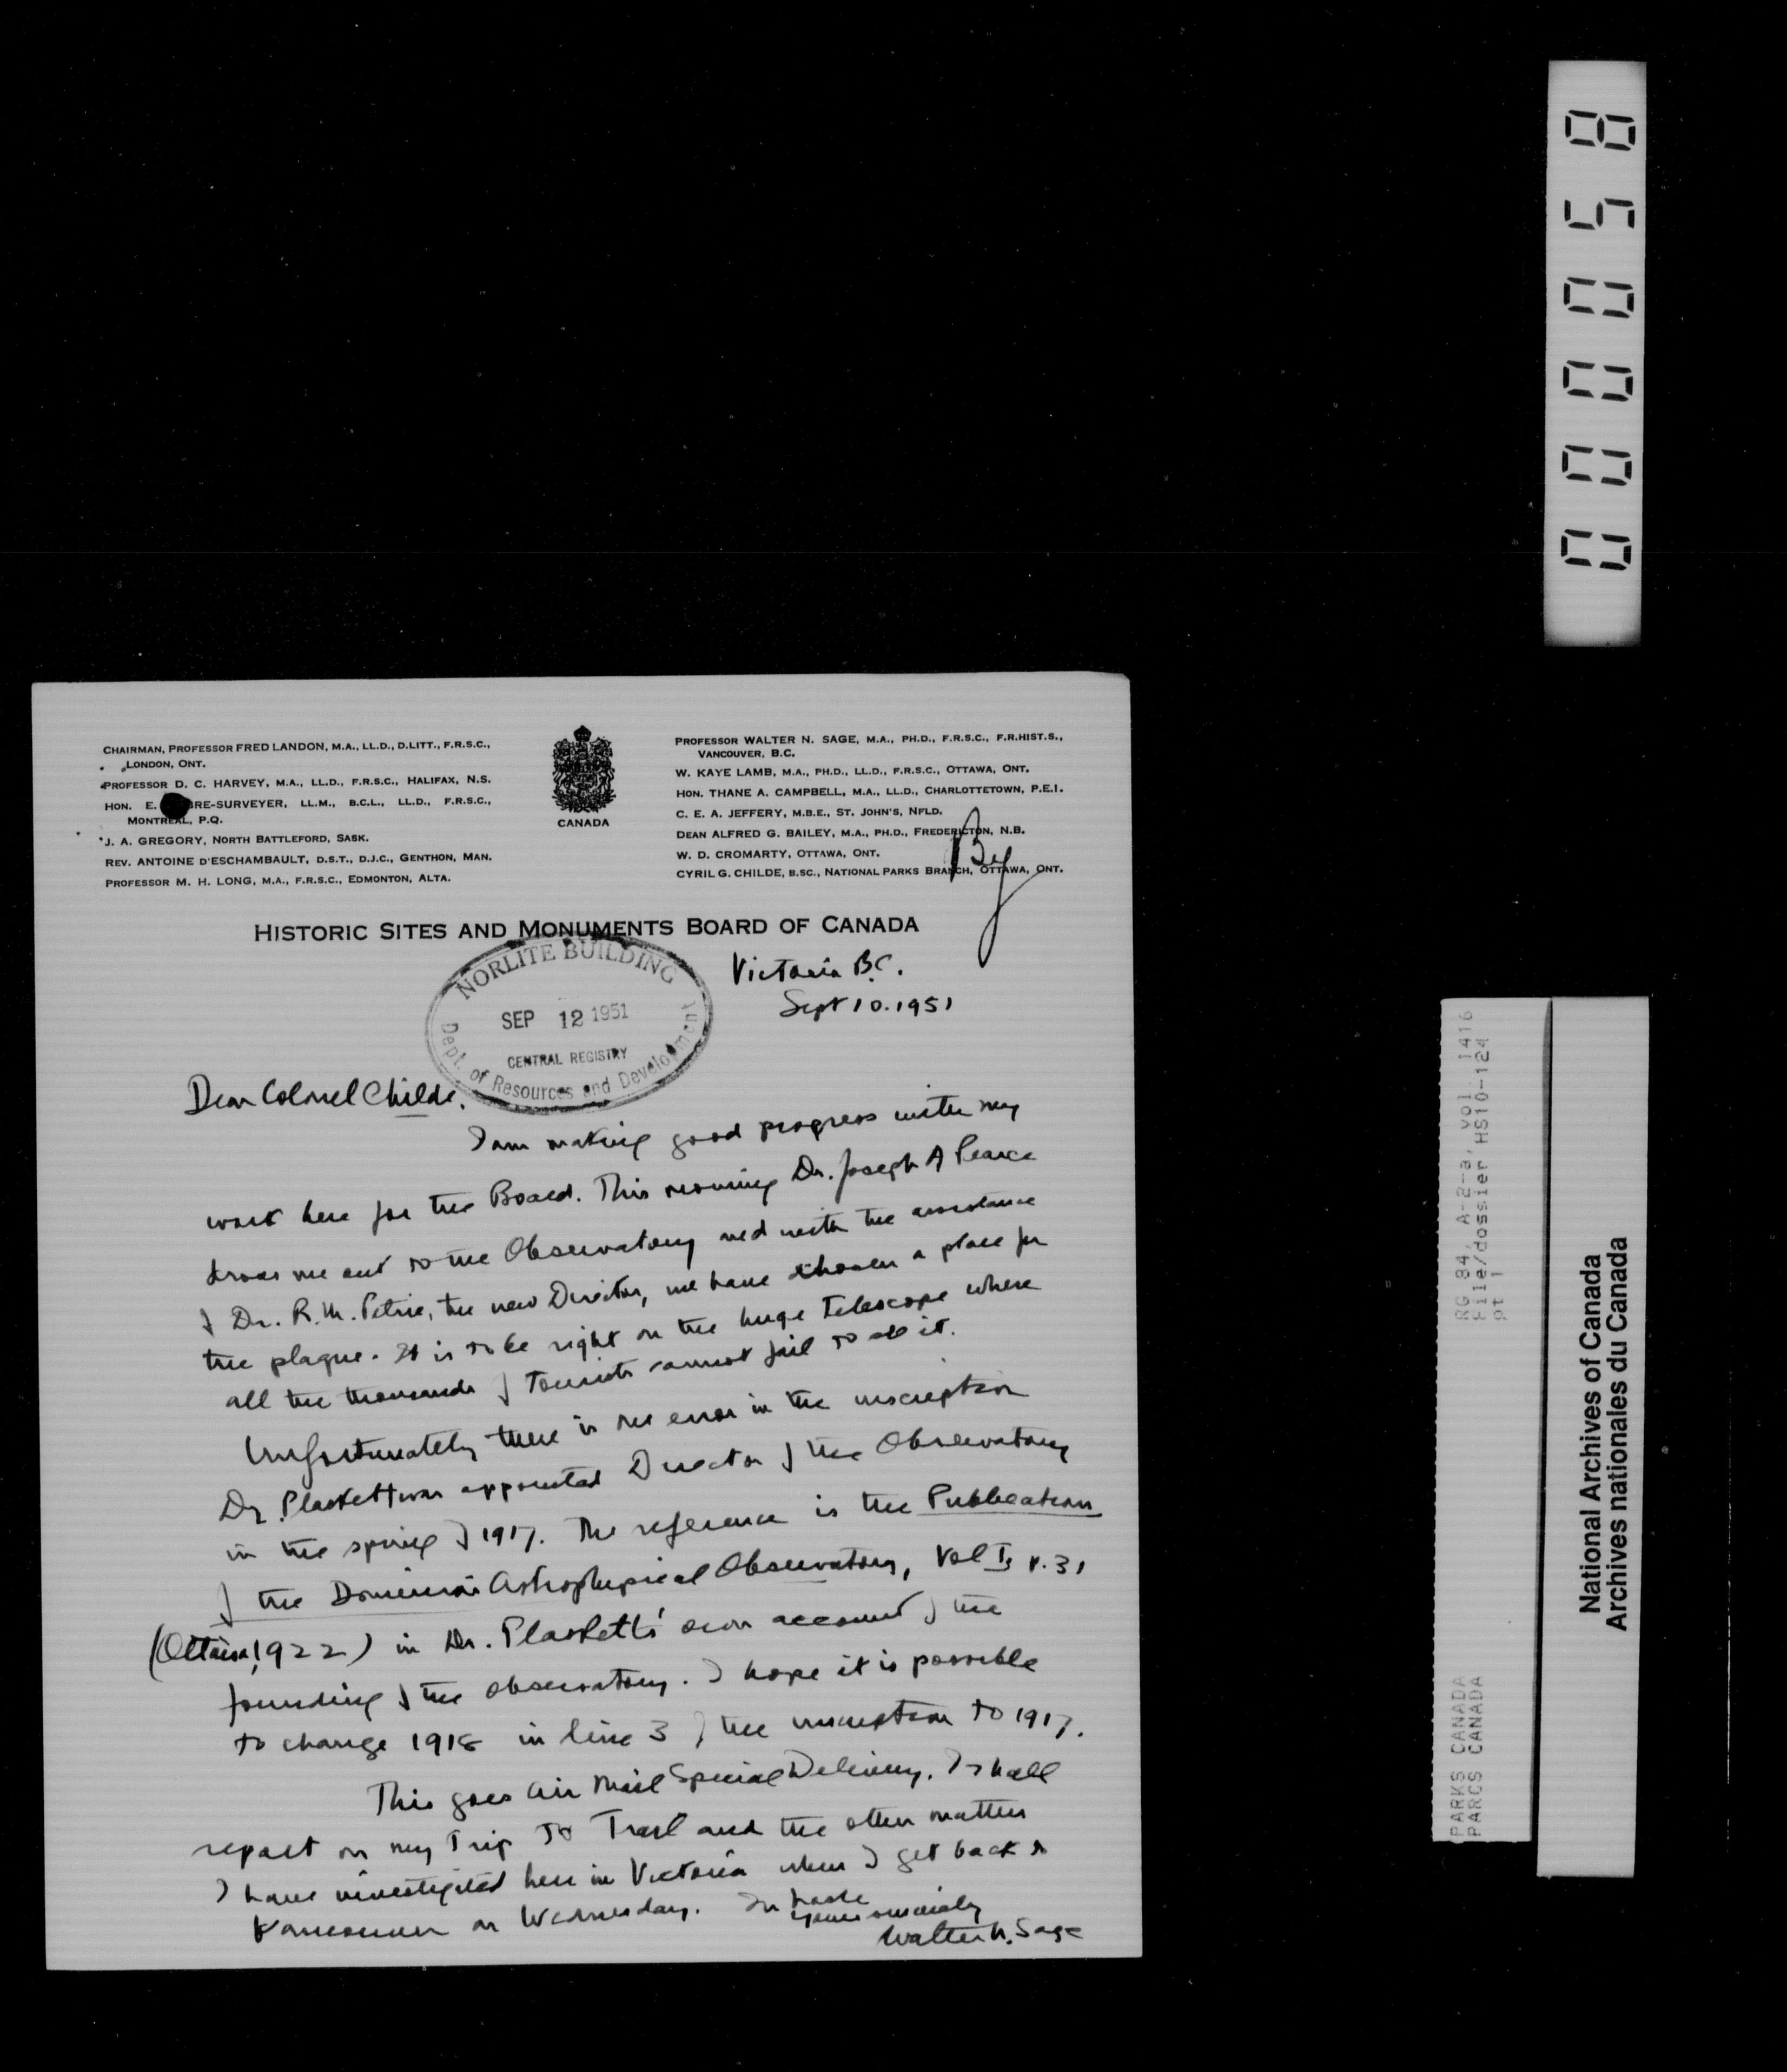 CHAIRMAN, PROFESSOR FRED LANDON, M.A., LL.D., D.LITT., F.R.S.C.,
LONDON, ONT.
PROFESSOR D. C. HARVEY, M.A., LL.D., F.R.S.C., HALIFAX, N.S.
HON. E. RE-SURVEYER, LL.M., B.C.L., LL.D., F.R.S.C.,
MONTREAL, P.Q.
J. A. GREGORY, NORTH BATTLEFORD, SASK.
REV. ANTOINE D'ESCHAMBAULT, D.S.T., D.J.C., GENTHON, MAN.
PROFESSOR M. H. LONG, M.A., F.R.S.C., EDMONTON, ALTA.
CANADA
PROFESSOR WALTER N. SAGE, M.A., PH.D., F.R.S.C., F.R.HIST.S.,
VANCOUVER, B.C.
W. KAYE LAMB, M.A., PH.D., LL.D., F.R.S.C., OTTAWA, ONT.
HON. THANE A. CAMPBELL, M.A., LL.D., CHARLOTTETOWN, P.E.I.
C. E. A. JEFFERY, M.B.E., ST. JOHN'S, NFLD.
DEAN ALFRED G. BAILEY, M.A., PH.D., FREDERICTON, N.B.
W. D. CROMARTY, OTTAWA, ONT.
CYRIL G. CHILDE, B.SC., NATIONAL PARKS BRANCH, OTTAWA, ONT.
By
HISTORIC SITES AND MONUMENTS BOARD OF CANADA
NORLITE BUILDING
SEP 12 1951
CENTRAL REGISTRY
Dept. of Resources and Development
Victoria B.C.
Sept 10. 1951
Dear Colonel Childe,
I am making good progress with my
work here for the Board. This morning Dr. Joseph A Pearce
drove me out to the Observatory and with the assistance
of Dr. R. M. Petrie, the new Director, we have chosen a place for
the plaque. It is to be right on the huge telescope where
all the thousands of Tourists cannot fail to see it.
Unfortunately there is one error in the inscription
Dr. Plaskett was appointed Director of the Observatory
in the spring of 1917. The reference is the Publications
of the Dominion Astrophysical Observatory, Vol I, p. 31
(Ottawa, 1922) in Dr. Plaskett's own account of the
founding of the observatory. I hope it is possible
to change 1918 in line 3 of the inscription to 1917.
This goes Air Mail Special Delivery. I shall
report on my Trip to Trail and the other matters
I have investigated here in Victoria when I get back to
Vancouver on Wednesday. In haste
yours sincerely
Walter N. Sage
000058
RG 84, A-2-a, vol. 1416
File/dossier HS10-124
pt 1
PARKS CANADA
PARCS CANADA
National Archives of Canada
Archives nationales du Canada